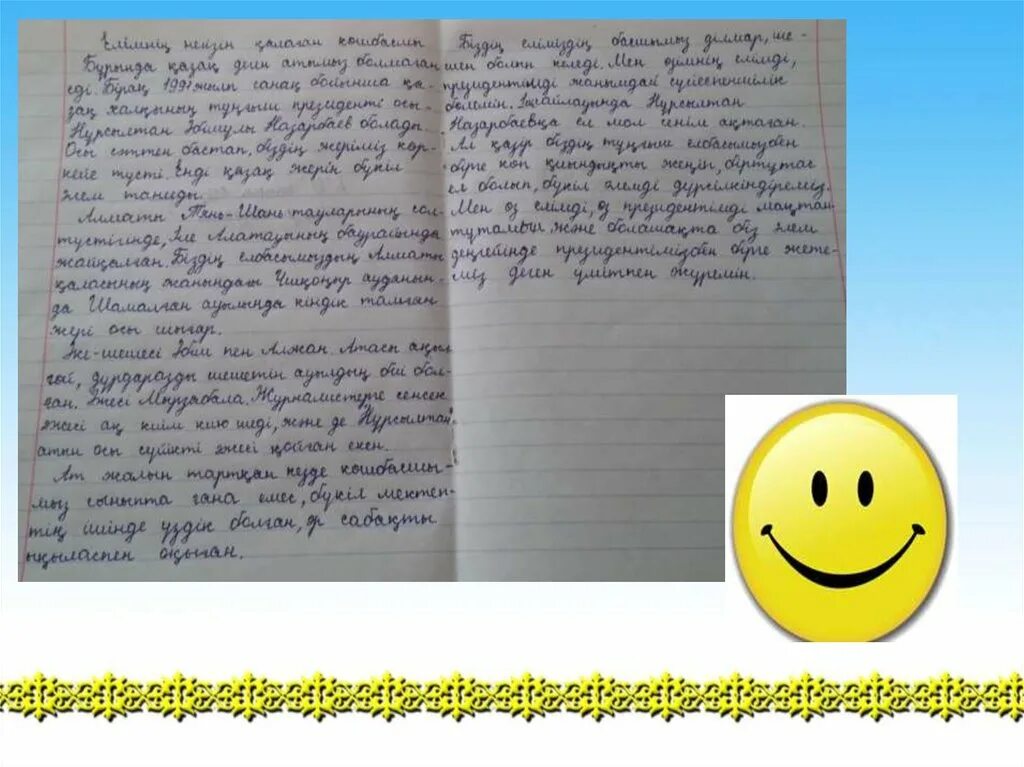 Елімнің негізін қалаған көшбасшы
Бұрында қазақ деген атымыз болмаған
еді. Бірақ 1991 жылғы санақ бойынша қа-
зақ халқының тұңғыш президенті осы-
Нұрсылтан Әбішұлы Назарбаев болады.
Осы сәттен бастап, біздің жеріміз көр-
кейе түсті. Енді қазақ жерін бүкіл
әлем таниды.
Алматы Тянь-Шань тауларының сол-
түстігінде, Іле Алатауының баурайында
жайқалған. Біздің елбасымыздың Алматы
қаласының жанындағы Үшқоңыр ауданын-
да Шамалған ауылында кіндік тамған
жері осы шығар.
Әке-шешесі Әбіш пен Алжан. Атасы ақыл
гөй, дүрдаразды шешетін ауылдың биі бол-
ған. Әжесі Мырзабала. Журналистерге сенсек
әжесі ақ киім кию шеді, және де Нұрсылтан
атты осы сүйікті әжесі қойған екен.
Ат жалын тартқан кезде көшбасшы-
мыз сыныпта ғана емес, бүкіл мектеп-
тің ішінде үздік болған, әр сабақты
ықыласпен оқыған.
Біздің еліміздің басшымыз ділмар, ше-
шен болып келеді. Мен өзімнің елімді,
президентімді жанымдай сүйіспеншілік
бөлемін. Нұрсылтан
Назарбаевқа ел мол сенім ақтаған.
Ал қазір біздің тұңғыш елбасымызбен
бірге көп қиындықты жеңіп, біртұтас
ел болып, бүкіл әлемді дүрсілкіндіреміз.
Мен өз елімді, өз президентімді мақтан
тұтамын және болашақта біз әлем
деңгейінде президентімізбен бірге жете-
міз деген үмітпен жүремін.